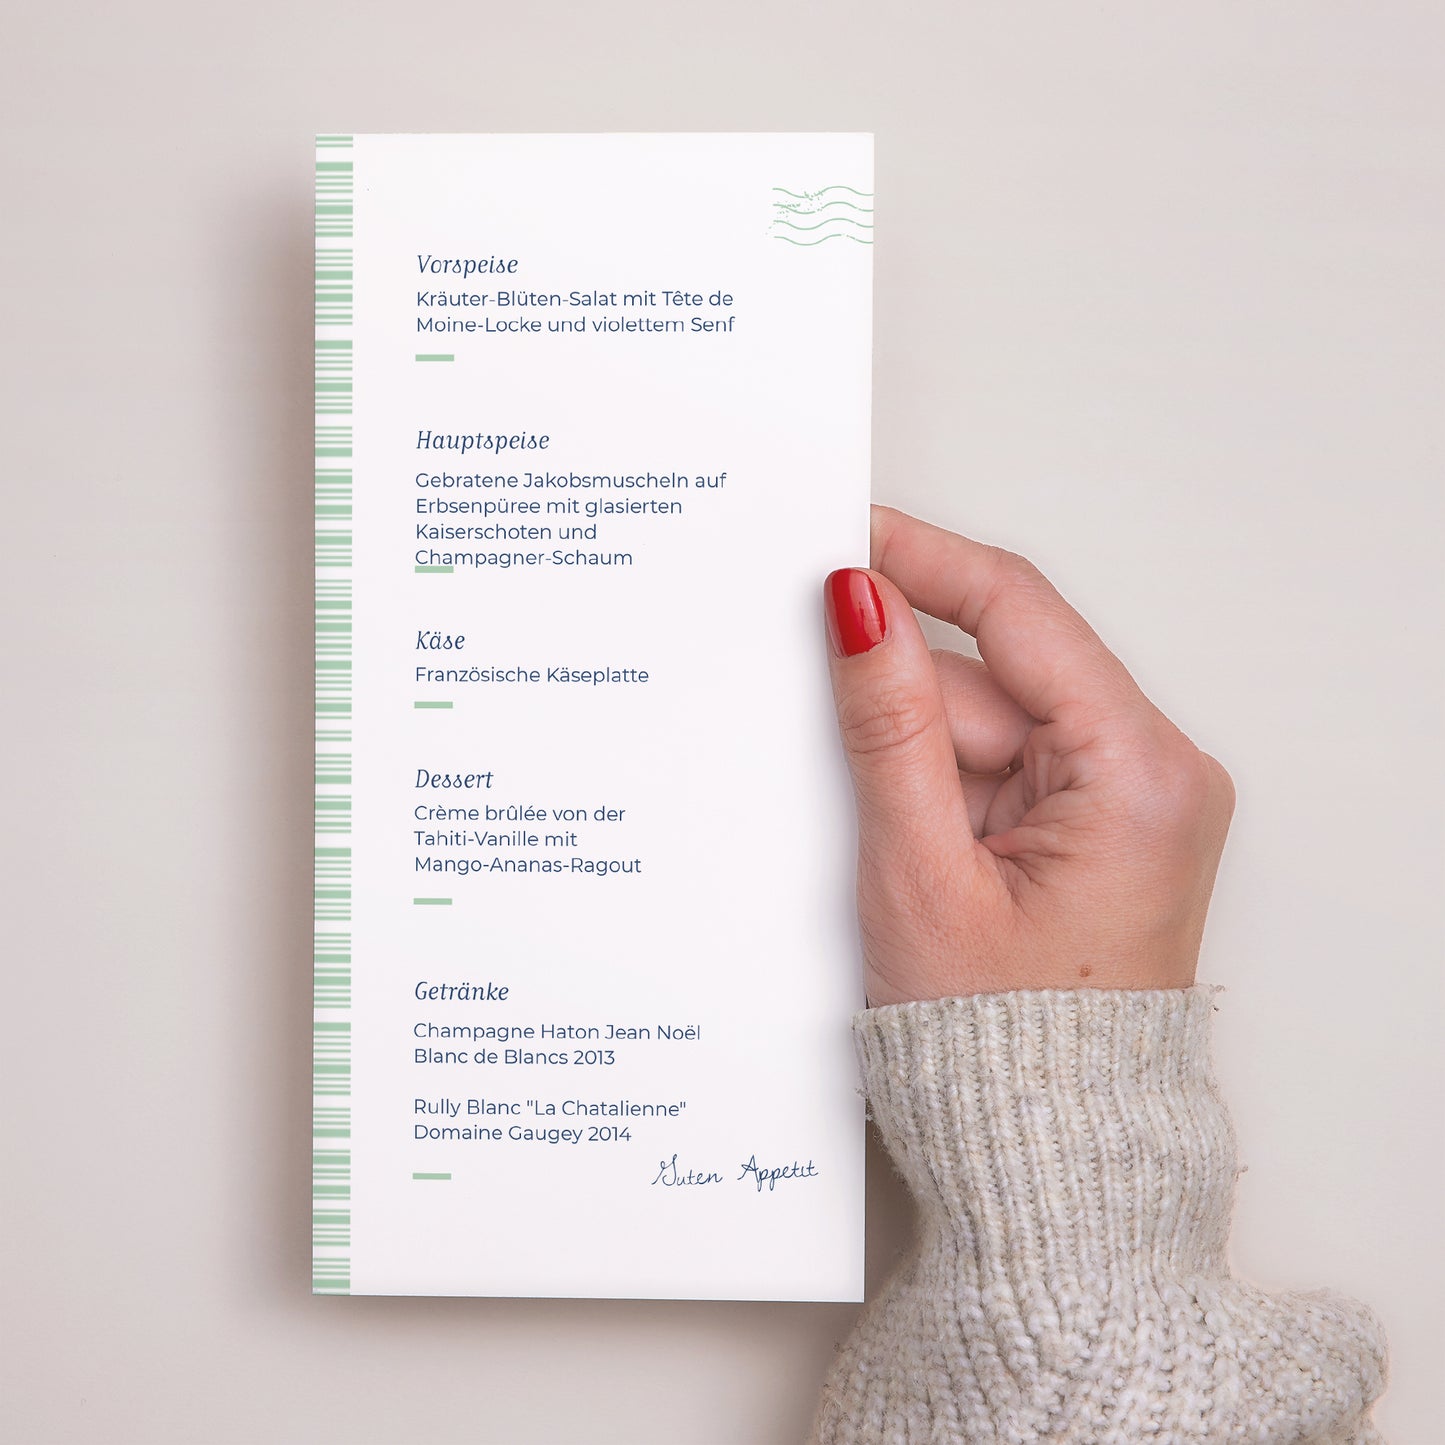 Vorspeise
Kräuter-Blüten-Salat mit Tête de
Moine-Locke und violettem Senf
Hauptspeise
Gebratene Jakobsmuscheln auf
Erbsenpüree mit glasierten
Kaiserschoten und
Champagner-Schaum
Käse
Französische Käseplatte
Dessert
Crème brûlée von der
Tahiti-Vanille mit
Mango-Ananas-Ragout
Getränke
Champagne Haton Jean Noël
Blanc de Blancs 2013
Rully Blanc "La Chatalienne"
Domaine Gaugey 2014
Guten Appetit